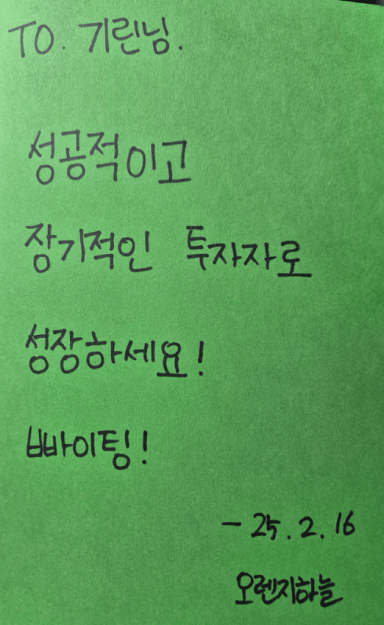 TO. 기린님.
성공적이고
장기적인 투자자로
성장하세요!
빠이팅!
- 25. 2. 16
오렌지하늘